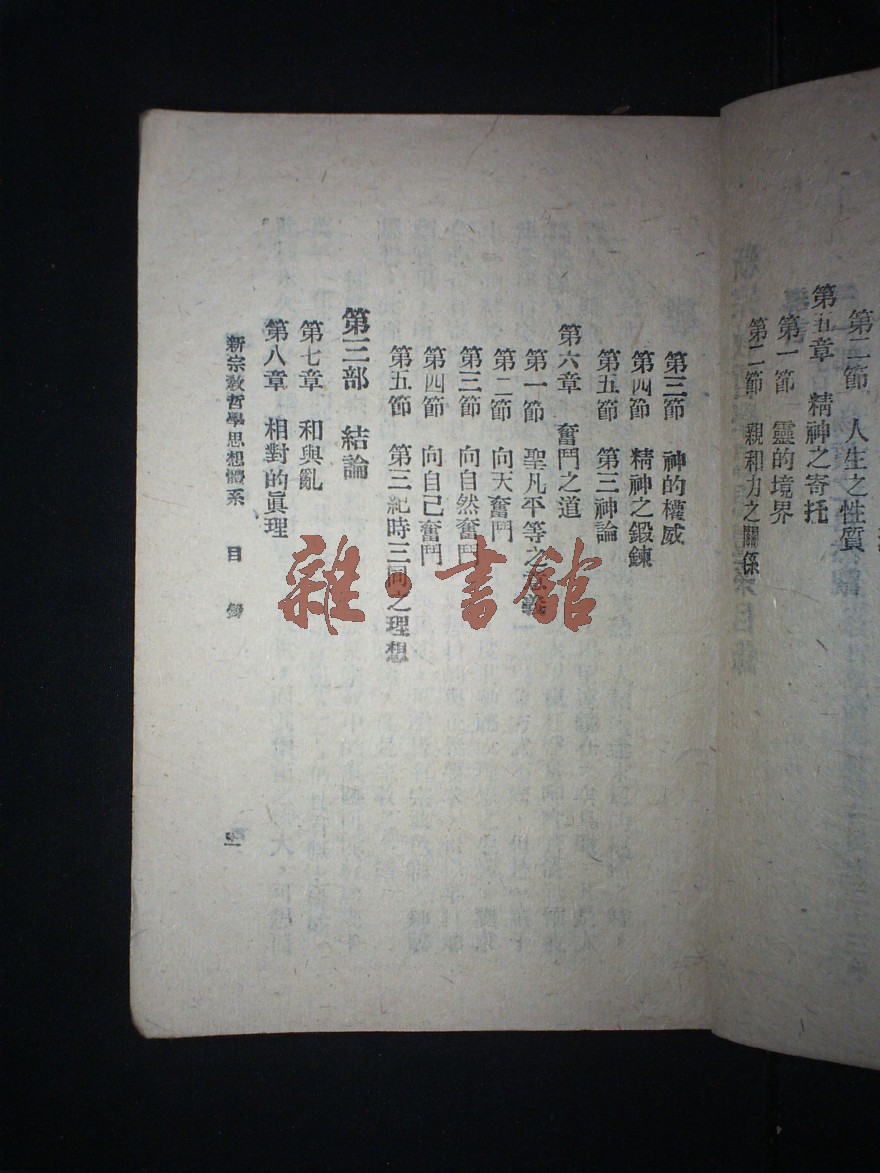 第二節 人生之性質
第五章 精神之寄托
第一節 靈的境界
第二節 親和力之關係
第三節 神的權威
第四節 精神之鍛鍊
第五節 第三神論
第六章 奮鬥之道
第一節 聖凡平等之意義
第二節 向天奮鬥
第三節 向自然奮鬥
第四節 向自己奮鬥
第五節 第三紀時三同之理想
第三部 結論
第七章 和與亂
第八章 相對的眞理
新宗教哲學思想體系 目錄
雜·書館